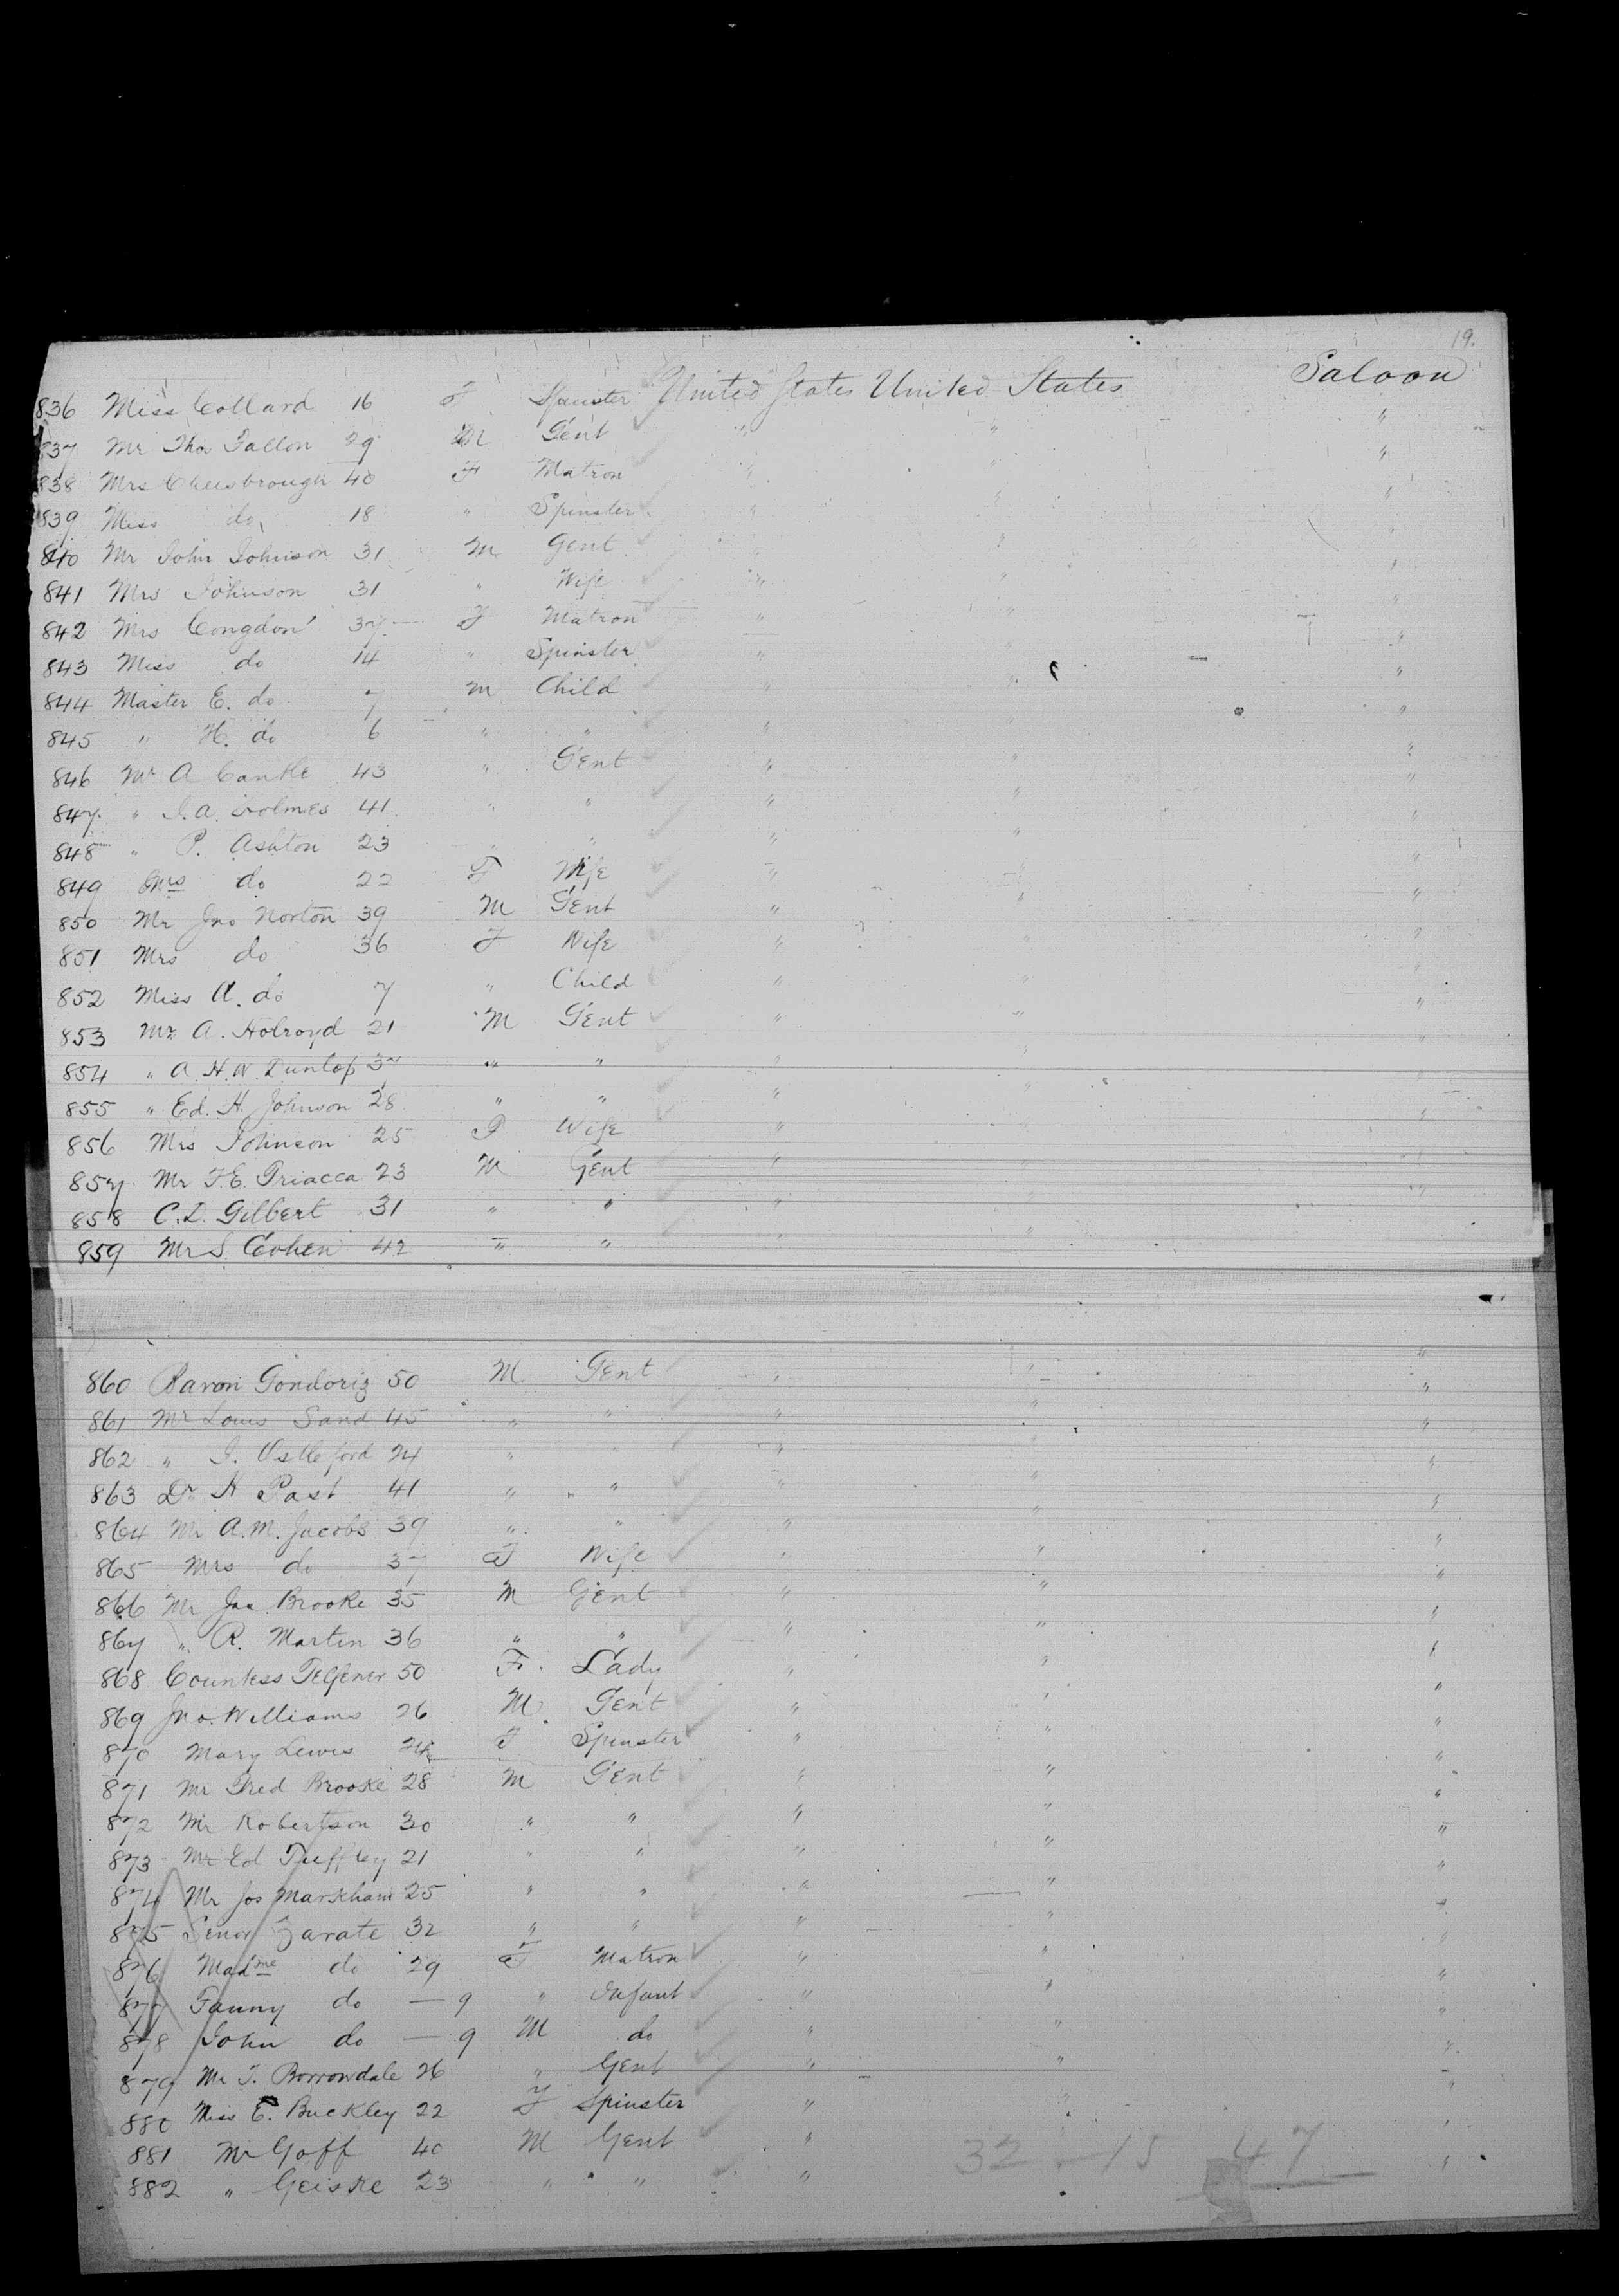 19.
Saloon
836 Miss Collard 16 F Spinster United States United States "
837 Mr Thos Fallon 29 M Gent " " "
838 Mrs Cheesbrough 40 F Matron " " "
839 Miss do 18 " Spinster " " "
840 Mr John Johnson 31 M Gent " " "
841 Mrs Johnson 31 " Wife " " "
842 Mrs Congdon 37 F Matron " " "
843 Miss do 14 " Spinster " " "
844 Master E. do 7 M Child " " "
845 " H. do 6 " " " " "
846 Mr A Cantle 43 " Gent " " "
847 " J. A. Holmes 41 " " " " "
848 " P. Ashton 23 " " " " "
849 Mrs do 22 F Wife " " "
850 Mr Jno Norton 39 M Gent " " "
851 Mrs do 36 F Wife " " "
852 Miss A. do 7 " Child " " "
853 Mr A. Holroyd 21 M Gent " " "
854 " A. H. W. Dunlop " " " " "
855 " Ed. H. Johnson 28 " " " " "
856 Mrs Johnson 25 F Wife " " "
857 Mr F. E. Triacca 23 M Gent " " "
858 C. I. Gilbert 31 " " " " "
859 Mr S. Cohen 42 " " " " "
860 Baron Gondoriz 50 M Gent " " "
861 Mr Louis Sand 45 " " " " "
862 " J. 24 " " " " "
863 Dr H Past 41 " " " " "
864 Mr A. M. Jacobs 39 " " " " "
865 Mrs do 37 F Wife " " "
866 Mr Jas Brooke 35 M Gent " " "
867 " R. Martin 36 " " " " "
868 Countess Telfener 50 F. Lady " " "
869 Jno. Williams 26 M Gent " " "
870 Mary Lewis 24 F Spinster " " "
871 Mr Fred Brooke 28 M Gent " " "
872 Mr Robertson 30 " " " " "
873 Mr Ed Tuffley 21 " " " " "
874 Mr Jos Markham 25 " " " " "
875 Senor Zarate 32 " " " " "
876 Madme do 29 F Matron " " "
877 Fanny do — 9 " Infant " " "
878 John do — 9 M do " " "
879 Mr T. Borrowdale 26 " Gent " " "
880 Miss E. Buckley 22 F Spinster " " "
881 Mr Goff 40 M Gent " " "
882 " Geiske 23 " " " "
32 15 47